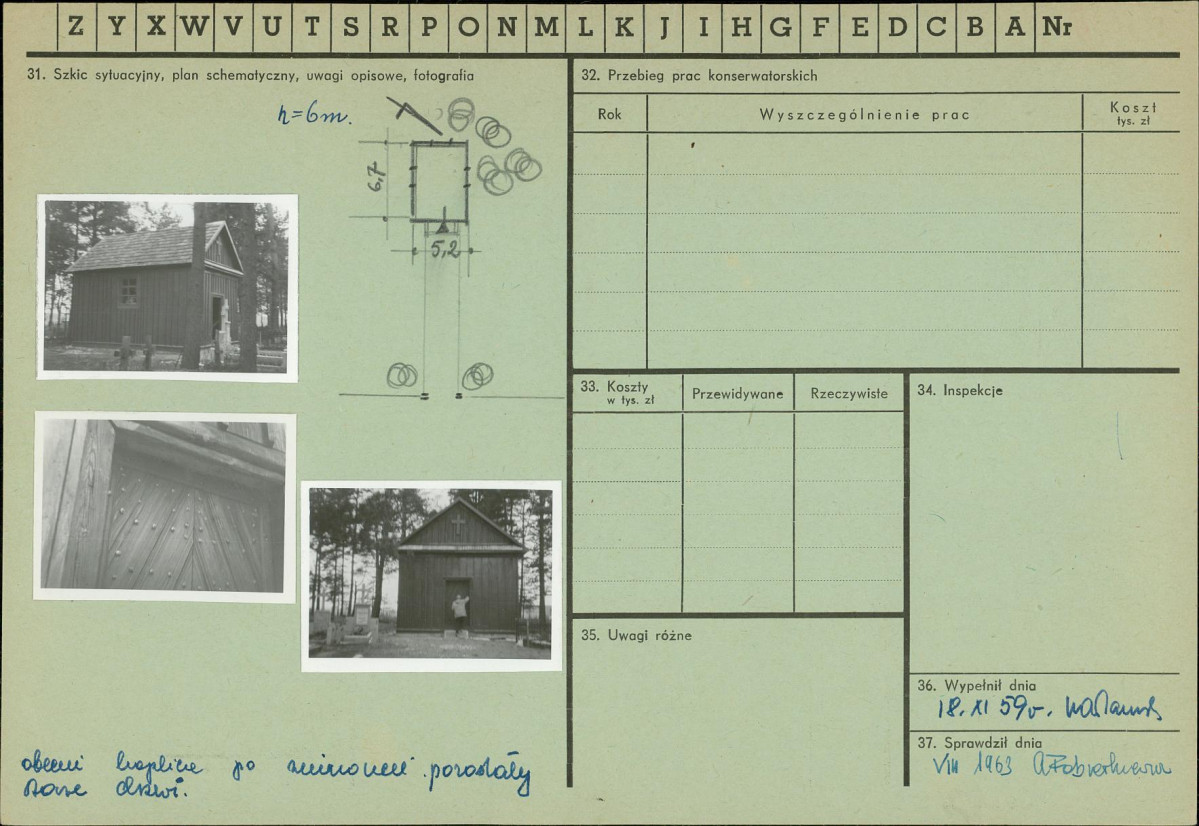 Z Y X W V U T S R P O N M L K J I H G F E D C B A Nr
31. Szkic sytuacyjny, plan schematyczny, uwagi opisowe, fotografia
h=6m.
6,7
5,2
po pozostały
stare drzwi.
32. Przebieg prac konserwatorskich
Rok
Wyszczególnienie prac
Koszt
tys. zł
33. Koszty
w tys. zł
Przewidywane
Rzeczywiste
34. Inspekcje
35. Uwagi różne
36. Wypełnił dnia
18. XI 59r.
37. Sprawdził dnia
VIII 1963